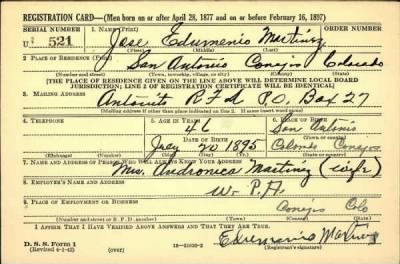 REGISTRATION CARD—(Men born on or after April 28, 1877 and on or before February 16, 1897)
SERIAL NUMBER 1. NAME (Print) ORDER NUMBER
U 521 Jose Edumenio Martinez
(First) (Middle) (Last)
2. PLACE OF RESIDENCE (Print)
San Antonio Conejos Colorado
(Number and street) (Town, township, village, or city) (County) (State)
[THE PLACE OF RESIDENCE GIVEN ON THE LINE ABOVE WILL DETERMINE LOCAL BOARD
JURISDICTION; LINE 2 OF REGISTRATION CERTIFICATE WILL BE IDENTICAL]
3. MAILING ADDRESS
Antonito R.F.d P.O. Box 27
[Mailing address if other than place indicated on line 2. If same insert word same]
4. TELEPHONE 5. AGE IN YEARS 6. PLACE OF BIRTH
46 San Antonio
DATE OF BIRTH (Town or county)
20 1895 Conejos
(Exchange) (Number) (Mo.) (Day) (Yr.) (State or country)
7. NAME AND ADDRESS OF PERSON WHO WILL ALWAYS KNOW YOUR ADDRESS
Mrs. Martinez (wife)
8. EMPLOYER'S NAME AND ADDRESS
W. P. A.
9. PLACE OF EMPLOYMENT OR BUSINESS
Conejos Colo
(Number and street or R. F. D. number) (Town) (County) (State)
I AFFIRM THAT I HAVE VERIFIED ABOVE ANSWERS AND THAT THEY ARE TRUE.
D. S. S. Form 1
(Revised 4-1-42) (over) Martinez
(Registrant's signature)